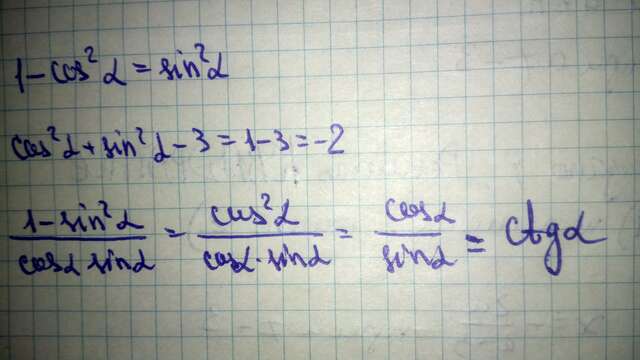 1-cos²α = sin²α
cos²α + sin²α - 3 = 1 - 3 = -2
(1-sin²α)/(cosα sinα) = cos²α/(cosα·sinα) = cosα/sinα = ctgα